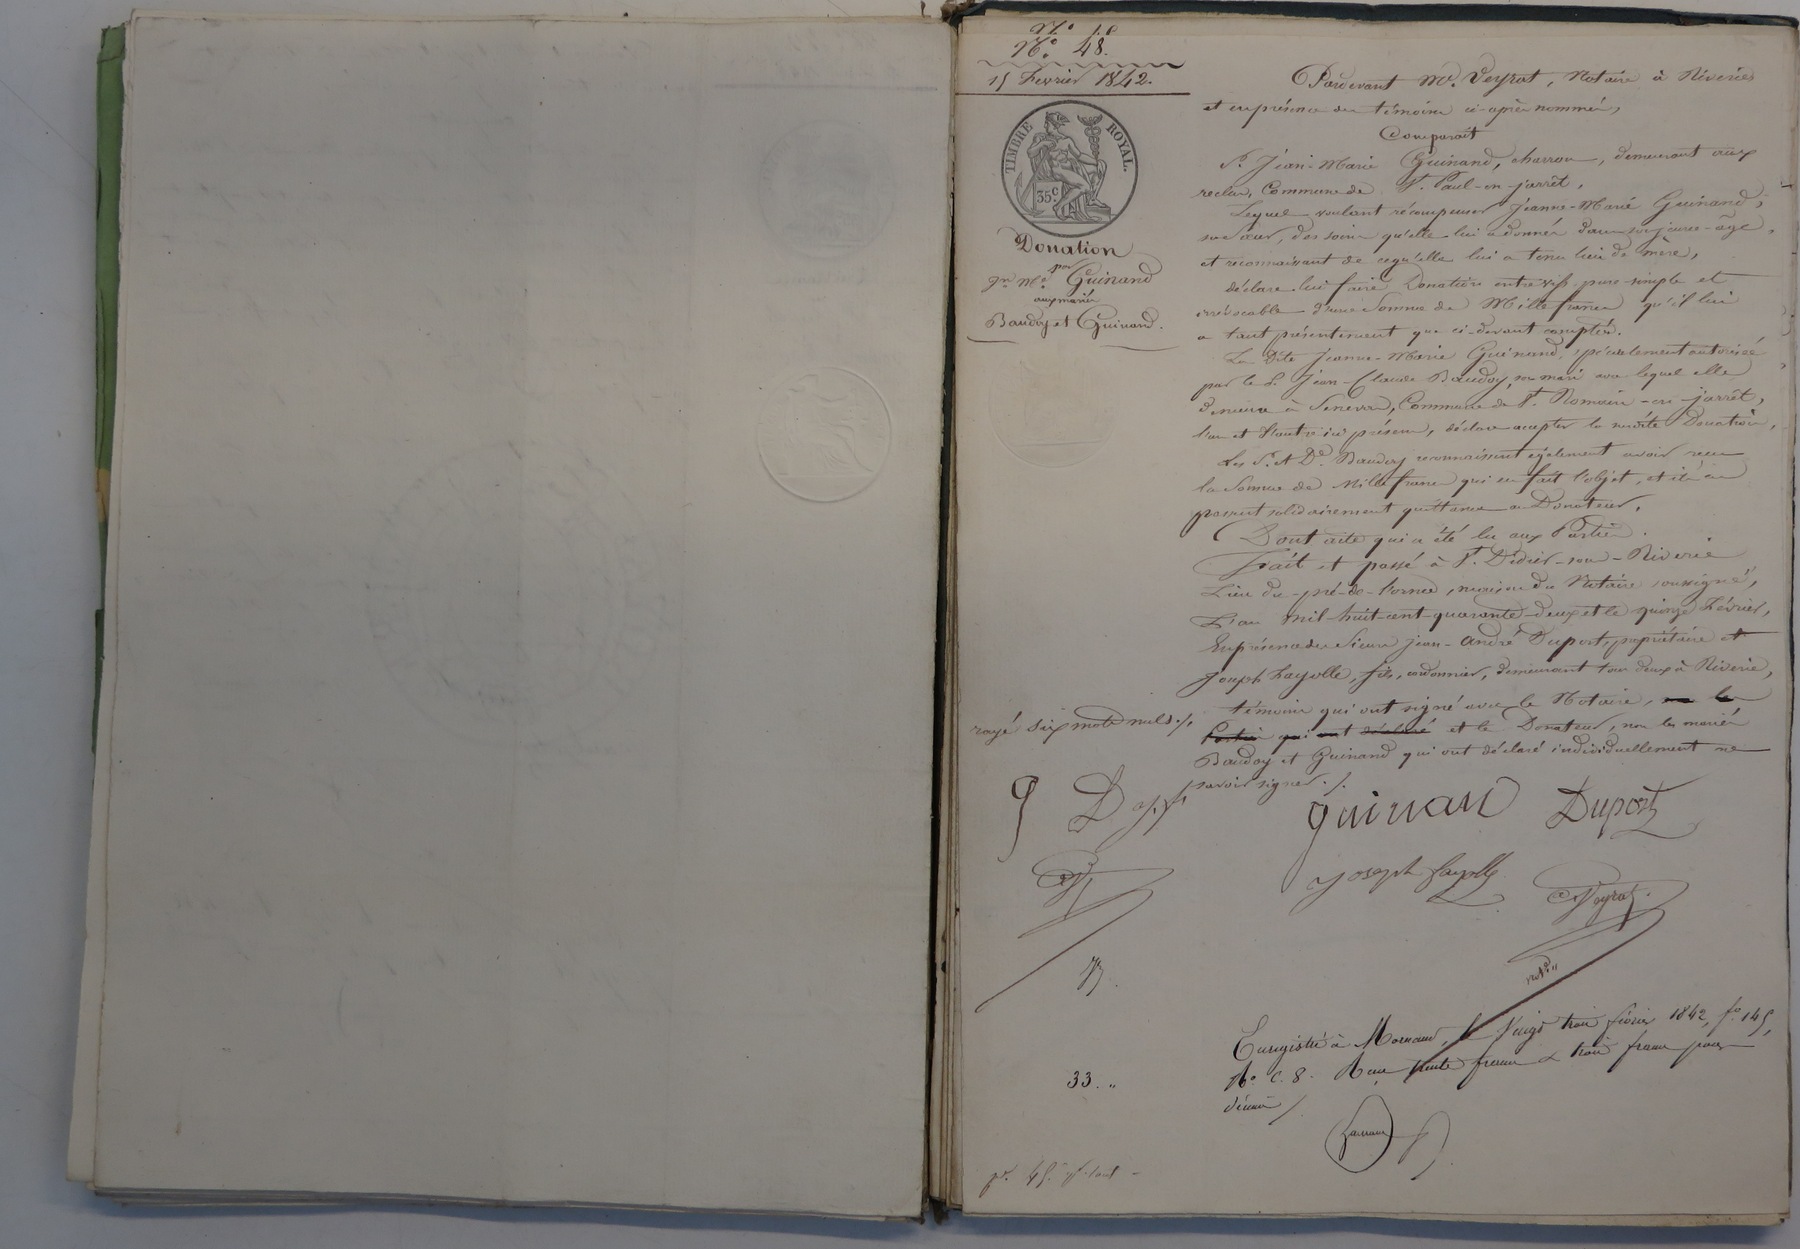 N° 48.
15 Février 1842.
TIMBRE ROYAL.
35 c.
Donation
par
Jn Mie Guinand
aux mariés
Baudoy et Guinand.
Pardevant Me. Veyrat, Notaire à Riverie
et en présence des témoins ci-après nommés,
Comparaît
Sr. Jean-Marie Guinand, charron, demeurant aux
reclus, Commune de St. Paul-en-jarrêt,
Lequel voulant récompenser Jeanne-Marie Guinand,
sa sœur, des soins qu'elle lui a donnés dans son jeune-âge,
et reconnaissant de ce qu'elle lui a tenu lieu de mère,
déclare lui faire Donation entre vifs pure-simple et
irrévocable d'une Somme de Mille francs qu'il lui
a tant présentement que ci-devant comptés.
La dite Jeanne-Marie Guinand, spécialement autorisée
par le Sr. Jean-Claude Baudoy, son mari avec lequel elle
demeure à Senevas, Commune de St. Romain-en-jarrêt,
l'un et l'autre ici présens, déclare accepter la susdite Donation,
Les Sr. et De. Baudoy reconnaissent également avoir reçu
la Somme de Mille francs qui en fait l'objet, et ils en
passent solidairement quittance au Donateur.
Dont acte qui a été lu aux Parties.
Fait et passé à St. Didier-sous-Riverie
Lieu du-pré-de-l'orme, maison du Notaire soussigné,
L'an mil-huit-cent-quarante-deux et le quinze Février,
En présence des Sieurs jean-André Duport, propriétaire et
Joseph Fayolle, fils, cordonnier, demeurant tous deux à Riverie,
témoins qui ont signé avec le Notaire, les
Parties qui ont déclaré et le Donateur, non les mariés
Baudoy et Guinand qui ont déclaré individuellement ne
savoir signer./.
rayé six mots nuls./.
g D J. f.
guinan Duport
Joseph fayolle
Veyrat
not.re
Enregistré à Mornant, le Vingt trois février 1842, fo. 145,
Ro. C. 8. Reçu trente francs & trois francs pour
décime /
33. "